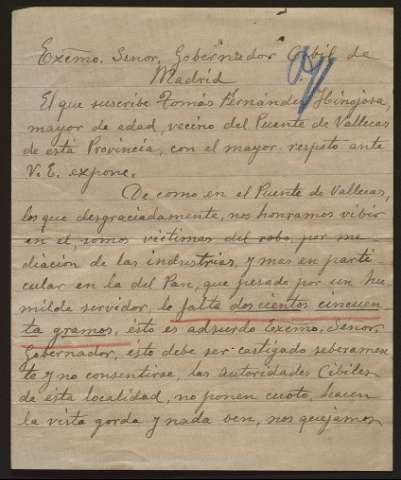 Exémo. Señor, Gobernador Cibil de
Madrid
El que suscribe Tomás Fernández Hinojosa,
mayor de edad, vecino del Puente de Vallecas
de esta Provincia, con el mayor respeto ante
V. E. expone.
De como en el Puente de Vallecas,
los que desgraciadamente, nos honramos vibir
en el somos victimas del robo, por me
diación de las industrias, y mas en parti
cular en la del Pan, que pesado por un hu
milde servidor, le falta dos cientos cincuen
ta gramos, ésto es adsurdo Exémo. Senor
Gobernador, ésto debe ser castigado seberamen
te y no consentirse, las autoridades Cibiles
de esta localidad, no ponen cuoto, hacen
la vista gorda y nada ven, nos quejamos